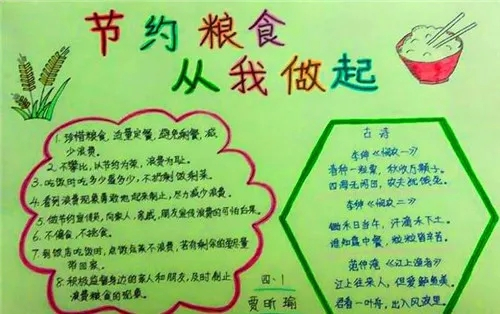 节约粮食
从我做起
1. 珍惜粮食，适量定餐，避免剩餐，减
少浪费。
2. 不攀比，以节约为荣，浪费为耻。
3. 吃饭时吃多少盛多少，不扔剩饭剩菜。
4. 看到浪费现象勇敢地起来制止，尽力减少浪费。
5. 做节约宣传员，向家人、亲戚、朋友宣传浪费的可怕后果。
6. 不偏食，不挑食。
7. 到饭店吃饭时，点饭点菜不浪费，若有剩余的要尽量
带回家。
8. 积极监督身边的家人和朋友，及时制止
浪费粮食的现象。
四.1
贾昕瑜
古诗
李绅《悯农一》
春种一粒粟，秋收万颗子。
四海无闲田，农夫犹饿死。
李绅《悯农二》
锄禾日当午，汗滴禾下土。
谁知盘中餐，粒粒皆辛苦。
范仲淹《江上渔者》
江上往来人，但爱鲈鱼美。
君看一叶舟，出入风波里。